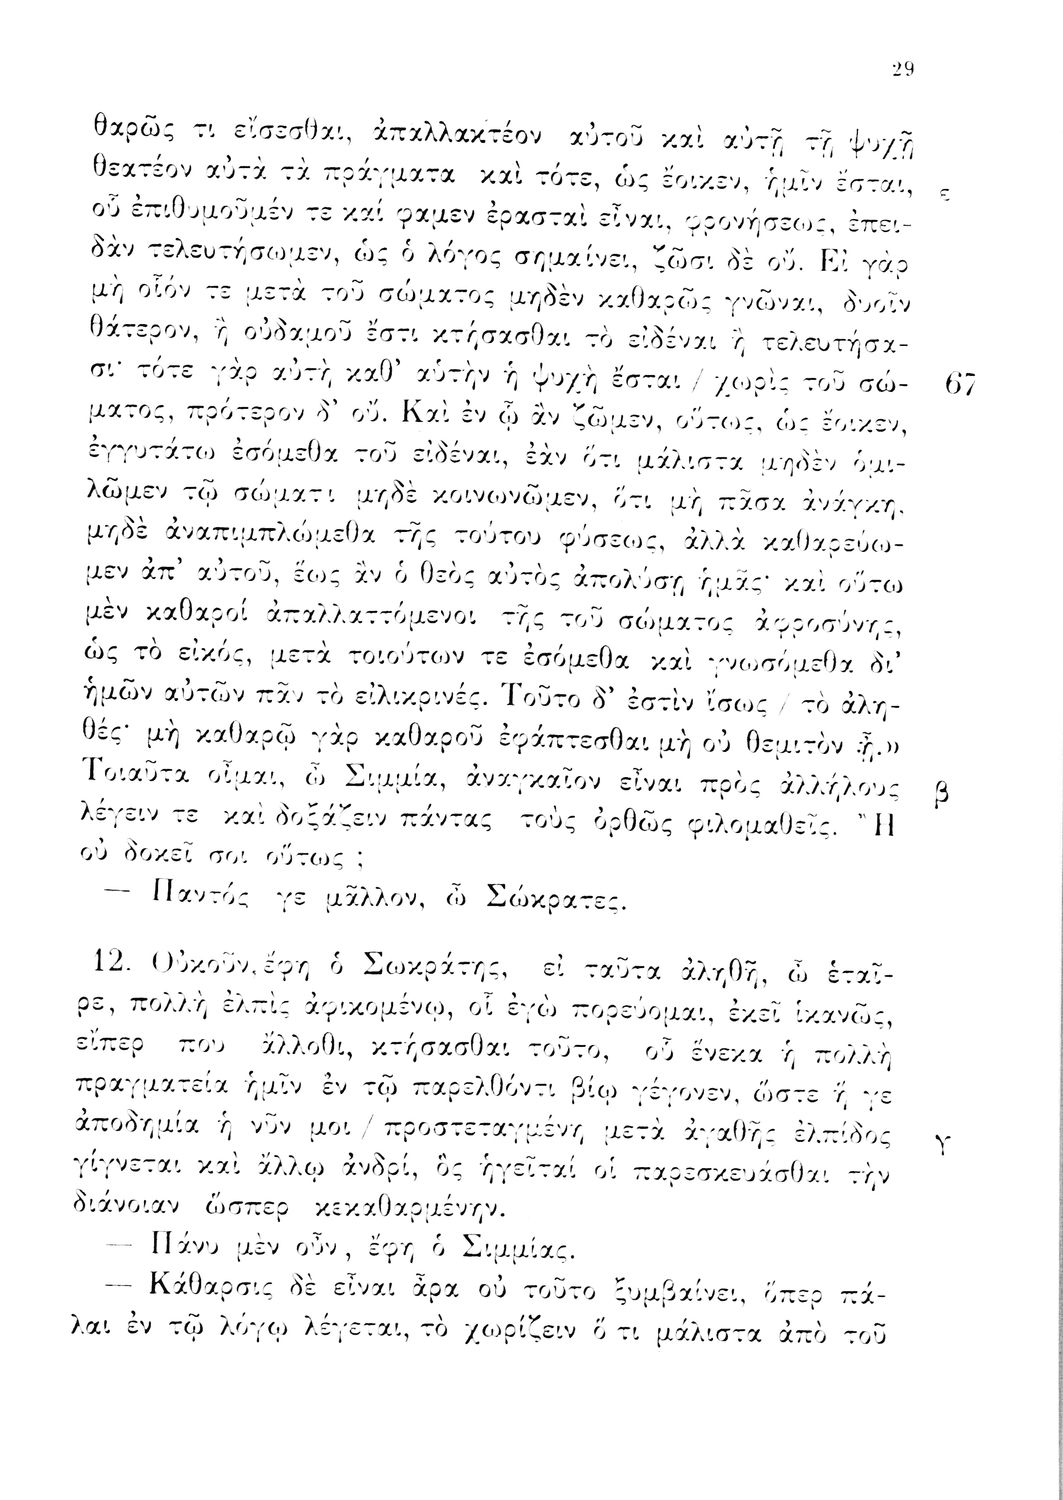 29
θαρῶς τι εἴσεσθαι, ἀπαλλακτέον αὐτοῦ καὶ αὐτῇ τῇ ψυχῇ
θεατέον αὐτὰ τὰ πράγματα καὶ τότε, ὡς ἔοικεν, ἡμῖν ἔσται, ε
οὗ ἐπιθυμοῦμέν τε καί φαμεν ἐρασταὶ εἶναι, φρονήσεως, ἐπει-
δὰν τελευτήσωμεν, ὡς ὁ λόγος σημαίνει, ζῶσι δὲ οὔ. Εἰ γὰρ
μὴ οἷόν τε μετὰ τοῦ σώματος μηδὲν καθαρῶς γνῶναι, δυοῖν
θάτερον, ἢ οὐδαμοῦ ἔστι κτήσασθαι τὸ εἰδέναι ἢ τελευτήσα-
σι· τότε γὰρ αὐτὴ καθ’ αὑτὴν ἡ ψυχὴ ἔσται / χωρὶς τοῦ σώ- 67
ματος, πρότερον δ’ οὔ. Καὶ ἐν ᾧ ἂν ζῶμεν, οὕτως, ὡς ἔοικεν,
ἐγγυτάτω ἐσόμεθα τοῦ εἰδέναι, ἐὰν ὅτι μάλιστα μηδὲν ὁμι-
λῶμεν τῷ σώματι μηδὲ κοινωνῶμεν, ὅτι μὴ πᾶσα ἀνάγκη,
μηδὲ ἀναπιμπλώμεθα τῆς τούτου φύσεως, ἀλλὰ καθαρεύω-
μεν ἀπ’ αὐτοῦ, ἕως ἂν ὁ θεὸς αὐτὸς ἀπολύσῃ ἡμᾶς· καὶ οὕτω
μὲν καθαροί ἀπαλλαττόμενοι τῆς τοῦ σώματος ἀφροσύνης,
ὡς τὸ εἰκός, μετὰ τοιούτων τε ἐσόμεθα καὶ γνωσόμεθα δι’
ἡμῶν αὐτῶν πᾶν τὸ εἰλικρινές. Τοῦτο δ’ ἐστὶν ἴσως / τὸ ἀλη-
θές· μὴ καθαρῷ γὰρ καθαροῦ ἐφάπτεσθαι μὴ οὐ θεμιτὸν ᾖ.»
Τοιαῦτα οἶμαι, ὦ Σιμμία, ἀναγκαῖον εἶναι πρὸς ἀλλήλους β
λέγειν τε καὶ δοξάζειν πάντας τοὺς ὀρθῶς φιλομαθεῖς. Ἢ
οὐ δοκεῖ σοι οὕτως ;
— Παντός γε μᾶλλον, ὦ Σώκρατες.
12. Οὐκοῦν, ἔφη ὁ Σωκράτης, εἰ ταῦτα ἀληθῆ, ὦ ἑταῖ-
ρε, πολλὴ ἐλπὶς ἀφικομένῳ, οἷ ἐγὼ πορεύομαι, ἐκεῖ ἱκανῶς,
εἴπερ που ἄλλοθι, κτήσασθαι τοῦτο, οὗ ἕνεκα ἡ πολλὴ
πραγματεία ἡμῖν ἐν τῷ παρελθόντι βίῳ γέγονεν, ὥστε ἥ γε
ἀποδημία ἡ νῦν μοι / προστεταγμένη μετὰ ἀγαθῆς ἐλπίδος γ
γίγνεται καὶ ἄλλῳ ἀνδρί, ὃς ἡγεῖταί οἱ παρεσκευάσθαι τὴν
διάνοιαν ὥσπερ κεκαθαρμένην.
— Πάνυ μὲν οὖν, ἔφη ὁ Σιμμίας.
— Κάθαρσις δὲ εἶναι ἆρα οὐ τοῦτο ξυμβαίνει, ὅπερ πά-
λαι ἐν τῷ λόγῳ λέγεται, τὸ χωρίζειν ὅ τι μάλιστα ἀπὸ τοῦ